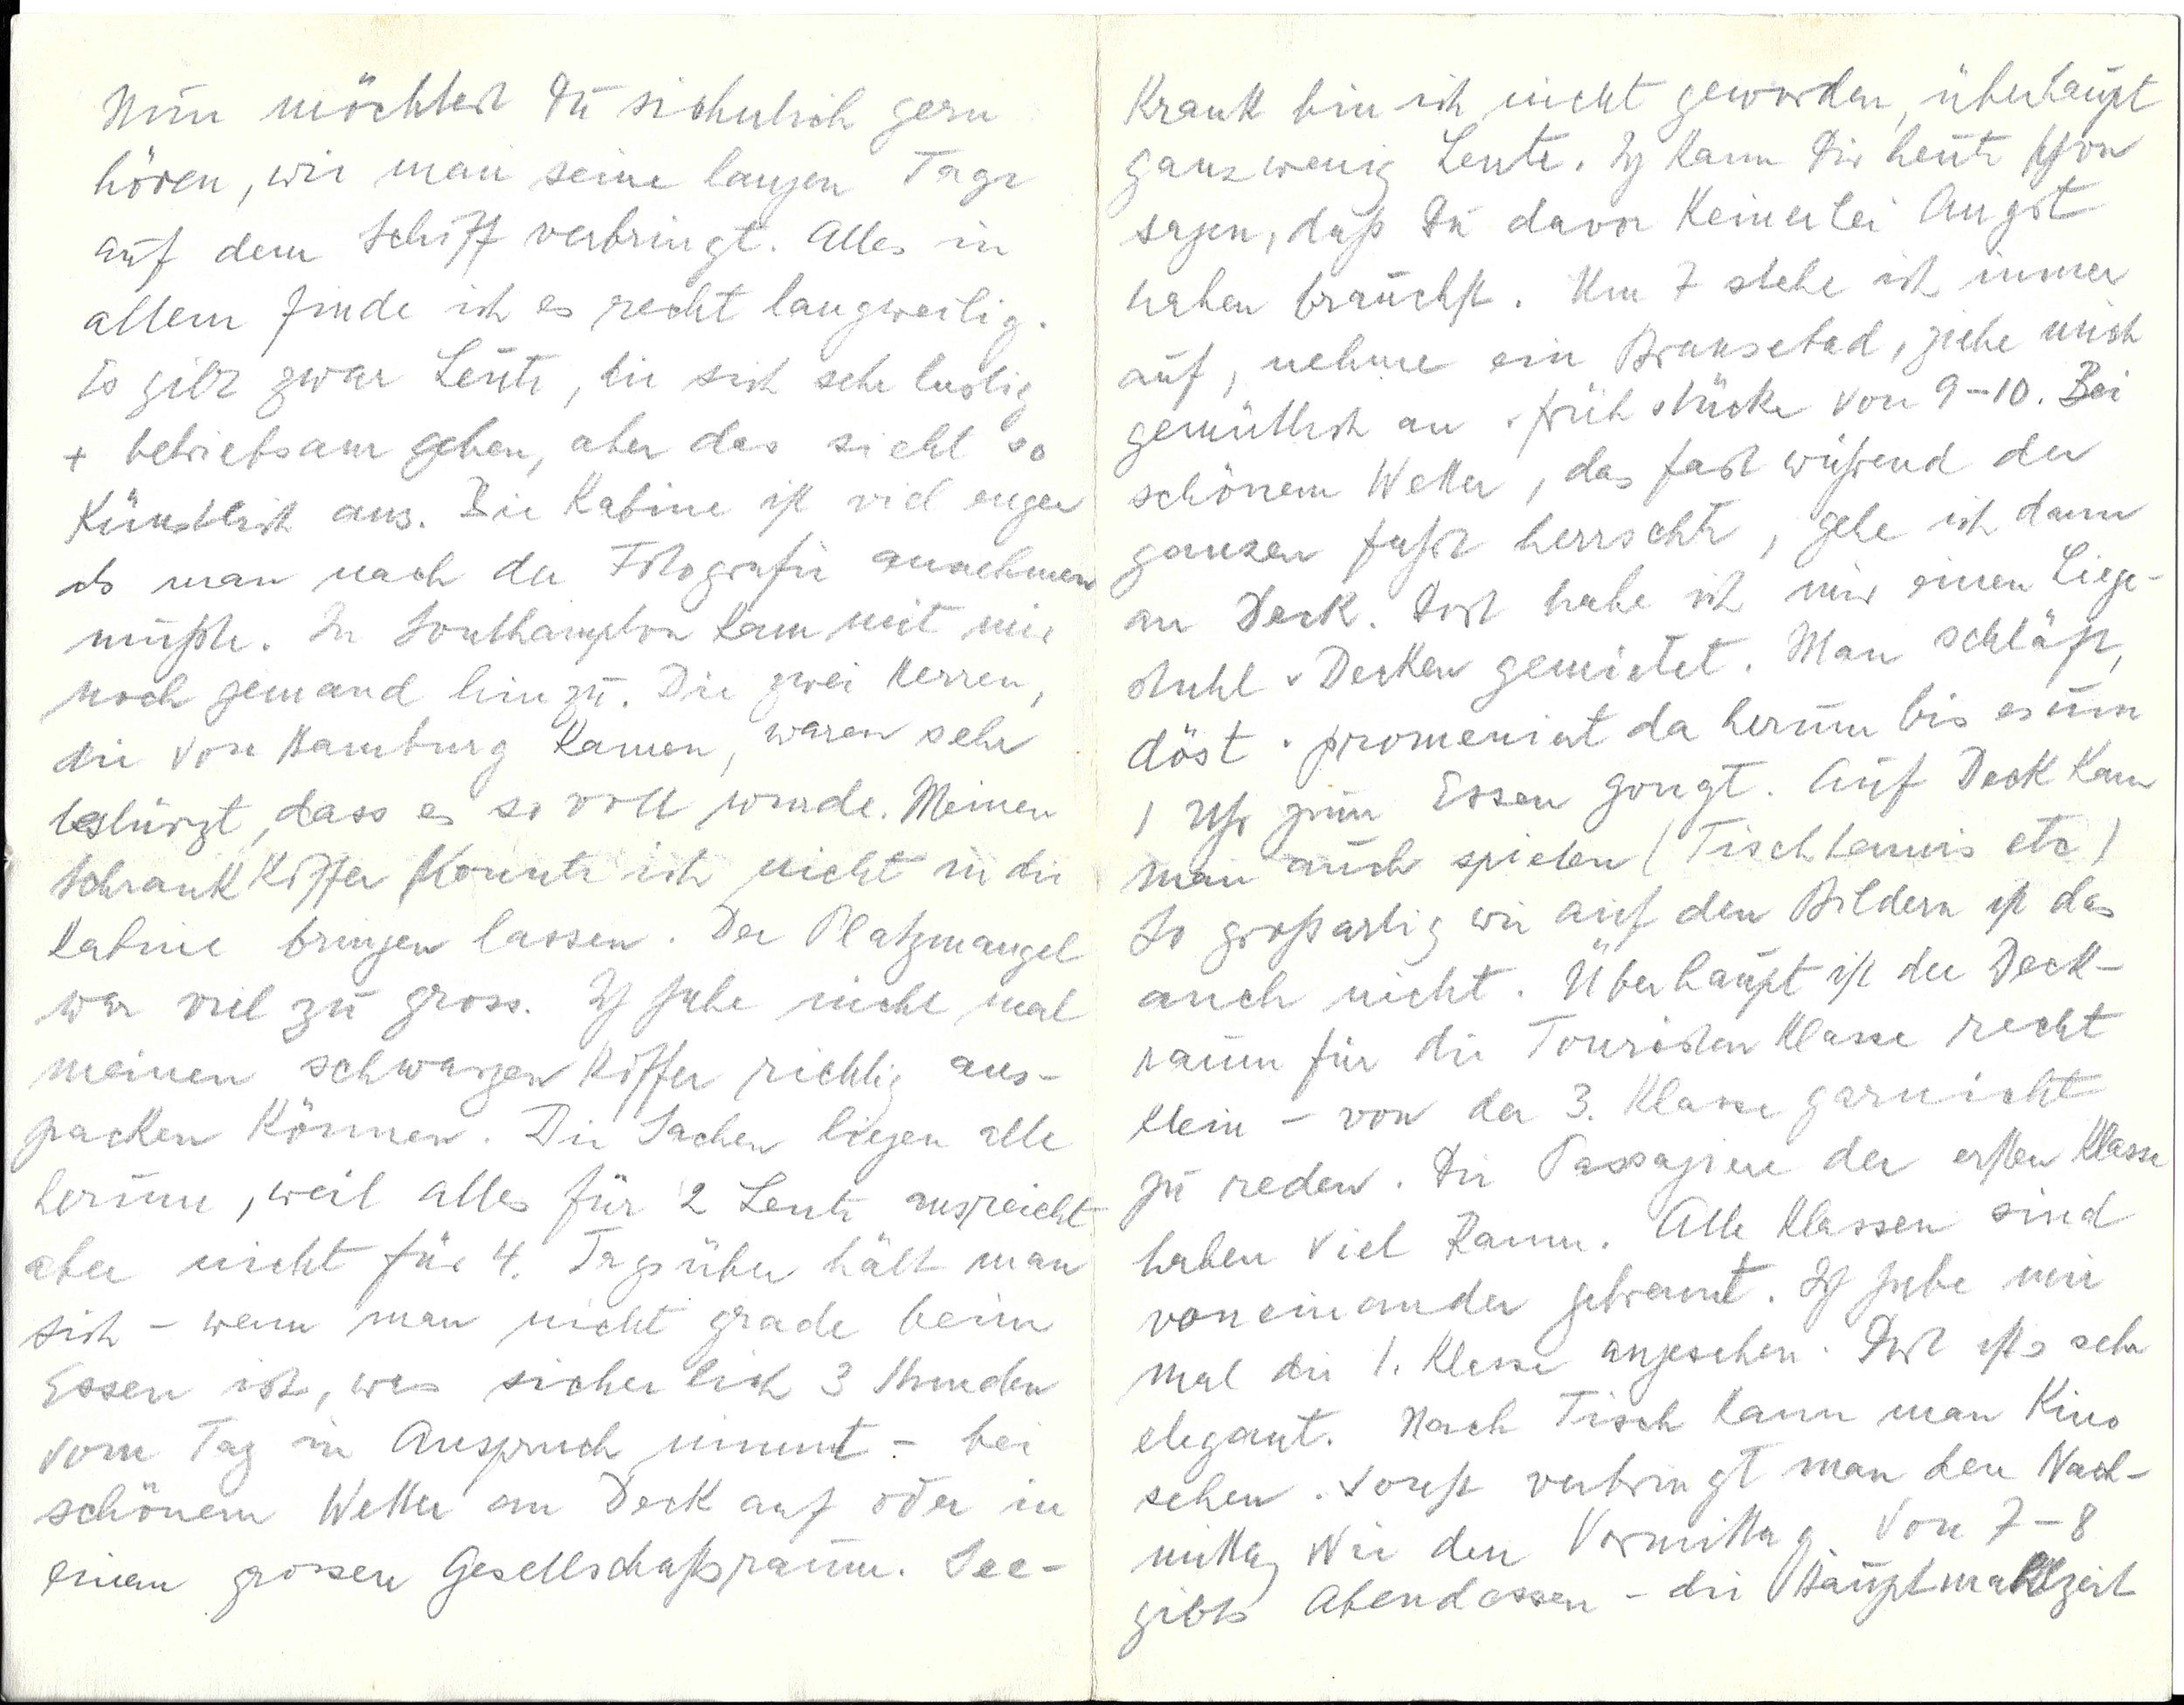 Nun möchtest Du sicherlich gern
hören, wie man seine langen Tage
auf dem Schiff verbringt. Alles in
allem finde ich es recht langweilig.
Es gibt zwar Leute, die sich sehr lustig
+ betriebsam geben, aber das sieht so
künstlich aus. Die Kabine ist viel enger
als man nach der Fotografie annehmen
müsste. In Southampton kam mit mir
noch jemand hinzu. Die zwei Herren,
die von Hamburg kamen, waren sehr
bestürzt, dass es so voll wurde. Meinen
Schrankkoffer konnte ich nicht in die
Kabine bringen lassen. Der Platzmangel
war viel zu gross. Ich habe nicht mal
meinen schwarzen Koffer richtig aus-
packen können. Die Sachen liegen alle
herum, weil alles für 2 Leute ausreicht
aber nicht für 4. Tagsüber hält man
sich - wenn man nicht grade beim
Essen ist, was sicherlich 3 Stunden
vom Tag in Anspruch nimmt - bei
schönem Wetter an Deck auf oder in
einem grossen Gesellschaftsraum. See-
krank bin ich nicht geworden, überhaupt
ganz wenig Leute. Ich kann Dir heute schon
sagen, daß Du davor keinerlei Angst
haben brauchst. Um 7 stehe ich immer
auf, nehme ein Brausebad, ziehe mich
gemütlich an + frühstücke von 9-10. Bei
schönem Wetter, das fast während der
ganzen Fahrt herrschte, gehe ich dann
an Deck. Dort habe ich mir einen Liege-
stuhl + Decken gemietet. Man schläft,
döst + promeniert da herum bis es um
1 Uhr zum Essen gongt. Auf Deck kann
man auch spielen (Tischtennis etc)
So großartig wie auf den Bildern ist das
auch nicht. Überhaupt ist der Deck-
raum für die Touristen Klasse recht
klein - von der 3. Klasse garnicht
zu reden. Die Passagiere der ersten Klasse
haben viel Raum. Alle Klassen sind
voneinander getrennt. Ich habe mir
mal die 1. Klasse angesehen. Dort ists sehr
elegant. Nach Tisch kann man Kino
sehen. Sonst verbringt man den Nach-
mittag wie den Vormittag. Von 7-8
gibts Abendessen - die Hauptmahlzeit